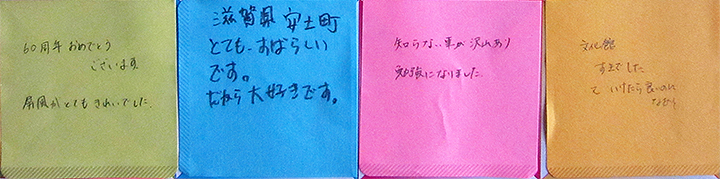 60周年 おめでとう
ございます
屏風がとても きれいでした。
滋賀県 安土町
とても、すばらしい
です。
だから 大好きです。
知らない事が 沢山あり
勉強になりました。
文化館
すきでした
いけたら良いのに